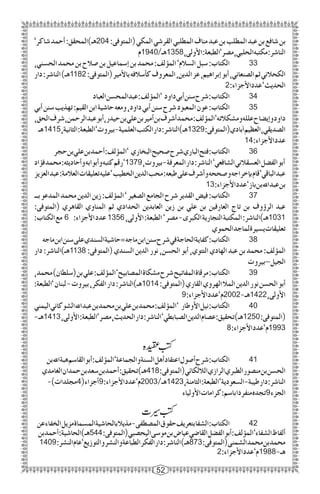 بن شافع بن عبد المطلب بن عبد مناف المطلبي القرشي المكي (المتوفى: 204هـ)المحقق:أحمد شاكر*
الناشر:مكتبه الحلبي،مصر*الطبعة:الأولى،1358هـ/1940م
33 الكتاب:سبل السلام*المؤلف:محمد بن إسماعيل بن صلاح بن محمد الحسني،
الكحلاني ثم الصنعاني، أبو إبراهيم، عز الدين، المعروف كأسلافه بالأمير (المتوفى:1182هـ)الناشر:دار
الحديث*عدد الأجزاء:2
34 الكتاب:شرح سنن أبي داود *المؤلف:عبد المحسن العباد
35 الكتاب:عون المعبود شرح سنن أبي داود، ومعه حاشية ابن القيم: تهذيب سنن أبي
داود وإيضاح علله ومشكلاته*المؤلف:محمد أشرف بن أمير بن علي بن حيدر، أبو عبد الرحمن، شرف الحق،
الصديقي، العظيم آبادي(المتوفى:1329هـ)الناشر:دار الكتب العلمية-بيروت*الطبعة:الثانية،1415هـ
عدد الأجزاء:14
36 الكتاب:فتح الباري شرح صحيح البخاري *المؤلف:أحمد بن علي بن حجر
أبو الفضل العسقلاني الشافعي*الناشر:دار المعرفة-بيروت،1379*رقم كتبه وأبوابه وأحاديثه:محمد فؤاد
عبد الباقي*قام بإخراجه وصححه وأشرف على طبعه:محب الدين الخطيب*عليه تعليقات العلامة:عبد العزيز
بن عبد الله بن باز*عدد الأجزاء:13
37 الكتاب:فيض القدير شرح الجامع الصغير *المؤلف: زين الدين محمد المدعو بـ
عبد الرؤوف بن تاج العارفين بن علي بن زين العابدين الحدادي ثم المناوي القاهري (المتوفى:
1031هـ)الناشر: المكتبة التجارية الكبرى - مصر * الطبعة: الأولى، 1356 عدد الأجزاء: 6 مع الكتاب:
تعليقات يسيرة لماجد الحموي
38 الكتاب:كفاية الحاجة في شرح سنن ابن ماجه=حاشية السندي على سنن ابن ماجه
المؤلف: محمد بن عبد الهادي التتوي، أبو الحسن، نور الدين السندي (المتوفى: 1138هـ)الناشر: دار
الجيل-بيروت
39 الكتاب:مرقاة المفاتيح شرح مشكاة المصابيح*المؤلف:علي بن (سلطان) محمد،
أبو الحسن نور الدين الملا الهروي القاري (المتوفى: 1014هـ)الناشر: دار الفكر، بيروت - لبنان*الطبعة:
الأولى،1422هـ-2002م*عدد الأجزاء:9
40 الكتاب:نيل الأوطار *المؤلف:محمد بن علي بن محمد بن عبد الله الشوكاني اليمني
(المتوفى:1250هـ)تحقيق:عصام الدين الصبابطي*الناشر:دار الحديث،مصر*الطبعة:الأولى،1413هـ-
1993م*عدد الأجزاء:8
كتب عقيده
41 الكتاب:شرح أصول اعتقاد أهل السنة والجماعة*المؤلف:أبو القاسم هبة الله بن
الحسن بن منصور الطبري الرازي اللالكائي(المتوفى:418هـ)تحقيق:أحمد بن سعد بن حمدان الغامدي
الناشر:دار طيبة-السعودية*الطبعة:الثامنة،1423هـ/2003م*عدد الأجزاء:9أجزاء(4مجلدات)-
الجزء9تجده منفردا باسم:كرامات الأولياء
كتب سيرت
42 الكتاب:الشفا بتعريف حقوق المصطفى-مذيلا بالحاشية المسماة مزيل الخفاء عن
ألفاظ الشفاء*المؤلف:أبو الفضل القاضي عياض بن موسى اليحصبي(المتوفى:544هـ)الحاشية:أحمد بن
محمد بن محمد الشمنى(المتوفى:873هـ)الناشر:دار الفكر الطباعة والنشر والتوزيع*عام النشر:1409
هـ-1988م*عدد الأجزاء:2
52